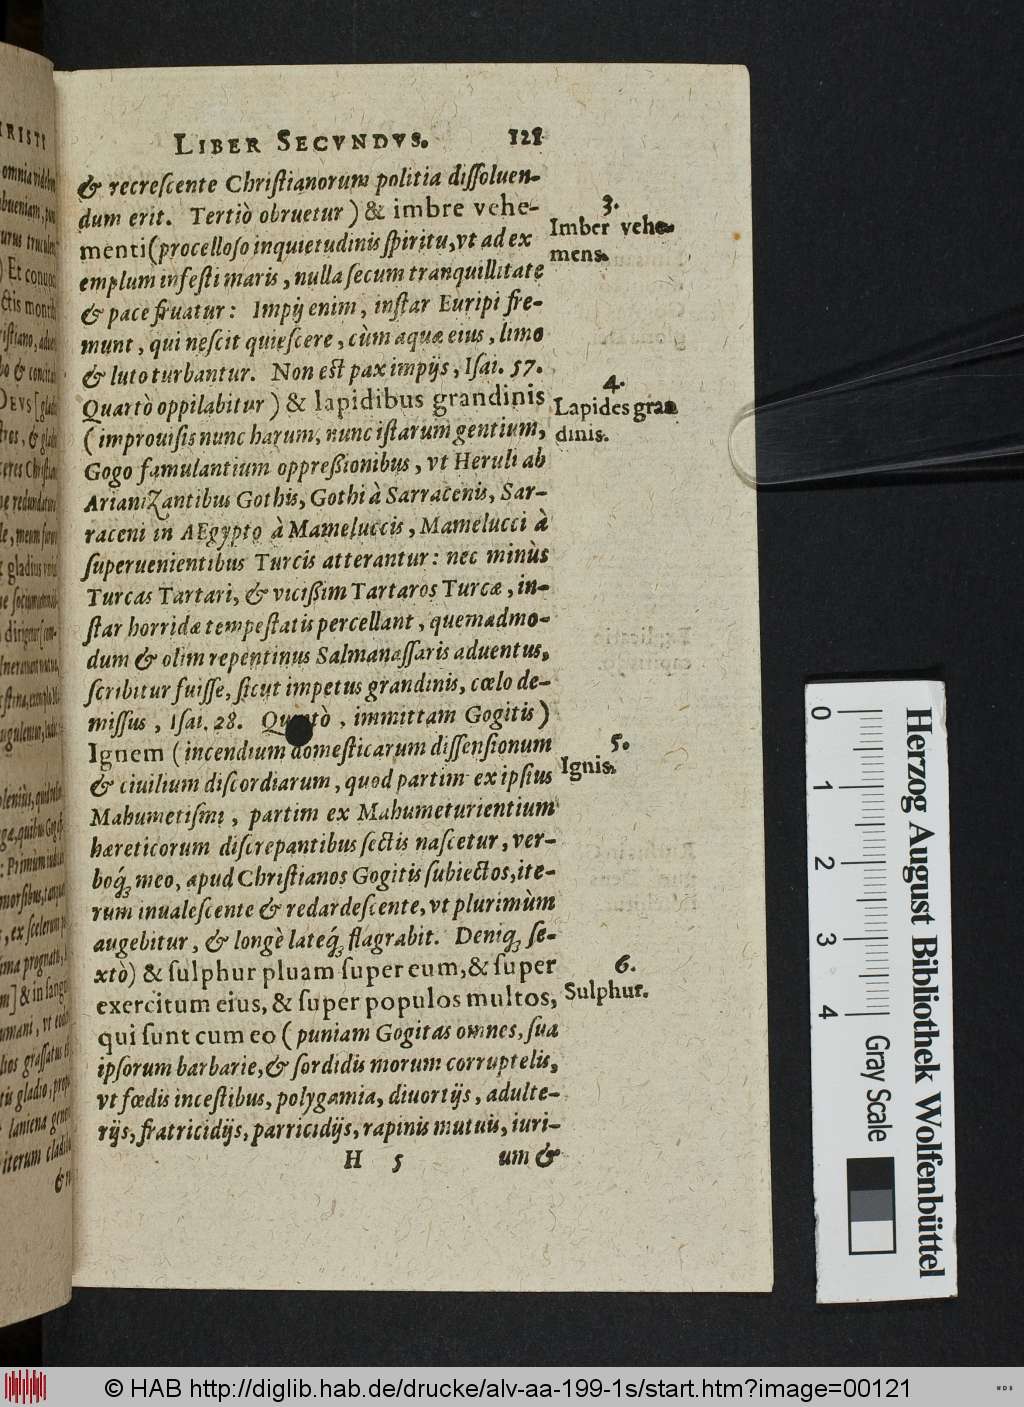 LIBER SECVNDVS. 121
& recreſcente Chriſtianorum politia diſſoluen-
dum erit. Tertiò obruetur) & imbre vehe-
menti (procelloſo inquietudinis ſpiritu, vt ad ex
emplum infeſti maris, nulla ſecum tranquillitate
& pace fruatur: Impij enim, inſtar Euripi fre-
munt, qui neſcit quieſcere, cùm aquæ eius, limo
& luto turbantur. Non eſt pax impijs, Iſai. 57.
Quartò oppilabitur) & lapidibus grandinis
(improuiſis nunc harum, nunc iſtarum gentium,
Gogo famulantium oppreßionibus, vt Heruli ab
Arianizantibus Gothis, Gothi à Sarracenis, Sar-
raceni in AEgypto à Mameluccis, Mamelucci à
ſuperuenientibus Turcis atterantur: nec minùs
Turcas Tartari, & vicißim Tartaros Turcæ, in-
ſtar horridæ tempeſtatis percellant, quemadmo-
dum & olim repentinus Salmanaſſaris aduentus,
ſcribitur fuiſſe, ſicut impetus grandinis, cœlo de-
miſſus, Iſai. 28. Quintò, immittam Gogitis)
Ignem (incendium domeſticarum diſſenſionum
& ciuilium diſcordiarum, quod partim ex ipſius
Mahumetiſmi, partim ex Mahumeturientium
hæreticorum diſcrepantibus ſectis naſcetur, ver-
boq́; meo, apud Chriſtianos Gogitis ſubiectos, ite-
rum inualeſcente & redardeſcente, vt plurimùm
augebitur, & longè lateq́; flagrabit. Deniq; ſe-
xtò) & ſulphur pluam ſuper eum, & ſuper
exercitum eius, & ſuper populos multos,
qui ſunt cum eo (puniam Gogitas omnes, ſua
ipſorum barbarie, & ſordidis morum corruptelis,
vt fœdis inceſtibus, polygamia, diuortijs, adulte-
rijs, fratricidijs, parricidijs, rapinis mutuis, iuri-
H 5 um &
3.
Imber vehe-
mens.
4.
Lapides gran
dinis.
5.
Ignis.
6.
Sulphur.
0 1 2 3 4
Herzog August Bibliothek Wolfenbüttel
Gray Scale
© HAB http://diglib.hab.de/drucke/alv-aa-199-1s/start.htm?image=00121